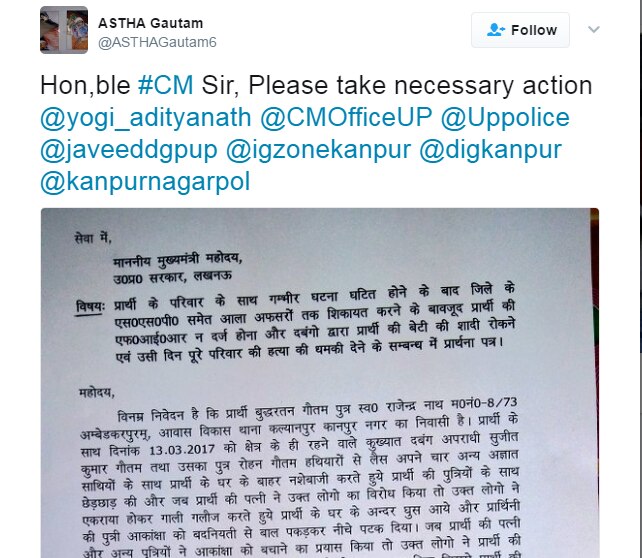 ASTHA Gautam
@ASTHAGautam6
Follow
Hon,ble #CM Sir, Please take necessary action
@yogi_adityanath @CMOfficeUP @Uppolice
@javeeddgpup @igzonekanpur @digkanpur
@kanpurnagarpol
सेवा में,
माननीय मुख्यमंत्री महोदय,
उ0प्र0 सरकार, लखनऊ
विषयः प्रार्थी के परिवार के साथ गम्भीर घटना घटित होने के बाद जिले के
एस0एस0पी0 समेत आला अफसरों तक शिकायत करने के बावजूद प्रार्थी की
एफ0आई0आर न दर्ज होना और दबंगो द्वारा प्रार्थी की बेटी की शादी रोकने
एवं उसी दिन पूरे परिवार की हत्या की धमकी देने के सम्बन्ध में प्रार्थना पत्र।
महोदय,
विनम्र निवेदन है कि प्रार्थी बुद्धरतन गौतम पुत्र स्व0 राजेन्द्र नाथ म0नं0-8/73
अम्बेडकरपुरम्, आवास विकास थाना कल्यानपुर कानपुर नगर का निवासी है। प्रार्थी के
साथ दिनांक 13.03.2017 को क्षेत्र के ही रहने वाले कुख्यात दबंग अपराधी सुजीत
कुमार गौतम तथा उसका पुत्र रोहन गौतम हथियारों से लैस अपने चार अन्य अज्ञात
साथियों के साथ प्रार्थी के घर के बाहर नशेबाजी करते हुये प्रार्थी की पुत्रियों के साथ
छेड़छाड़ की और जब प्रार्थी की पत्नी ने उक्त लोगो का विरोध किया तो उक्त लोगो ने
एकराया होकर गाली गलौज करते हुये प्रार्थी के घर के अन्दर घुस आये और प्रार्थिनी
की पुत्री आकांक्षा को बदनियती से बाल पकड़कर नीचे पटक दिया। जब प्रार्थी की पत्नी
और अन्य पुत्रियों ने आकांक्षा को बचाने का प्रयास किया तो उक्त लोगो ने प्रार्थी की